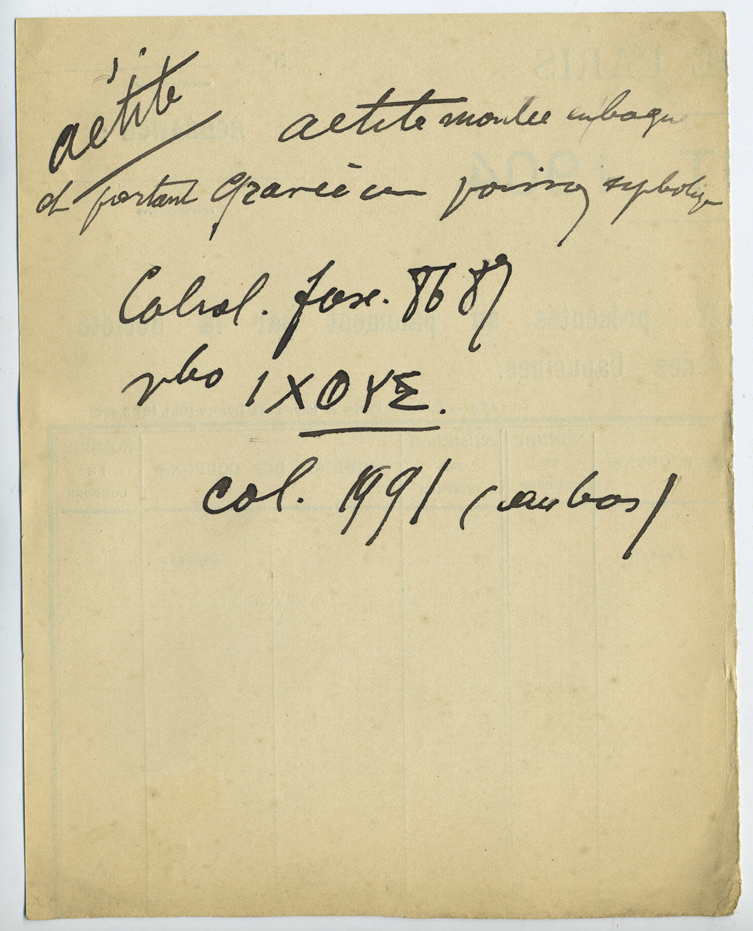 aétite
aetite montée en bague
et portant gravé un poisson symbolique
Cabrol. fasc. 86 87
vbo ΙΧΘΥΣ.
col. 1991 (en bas)